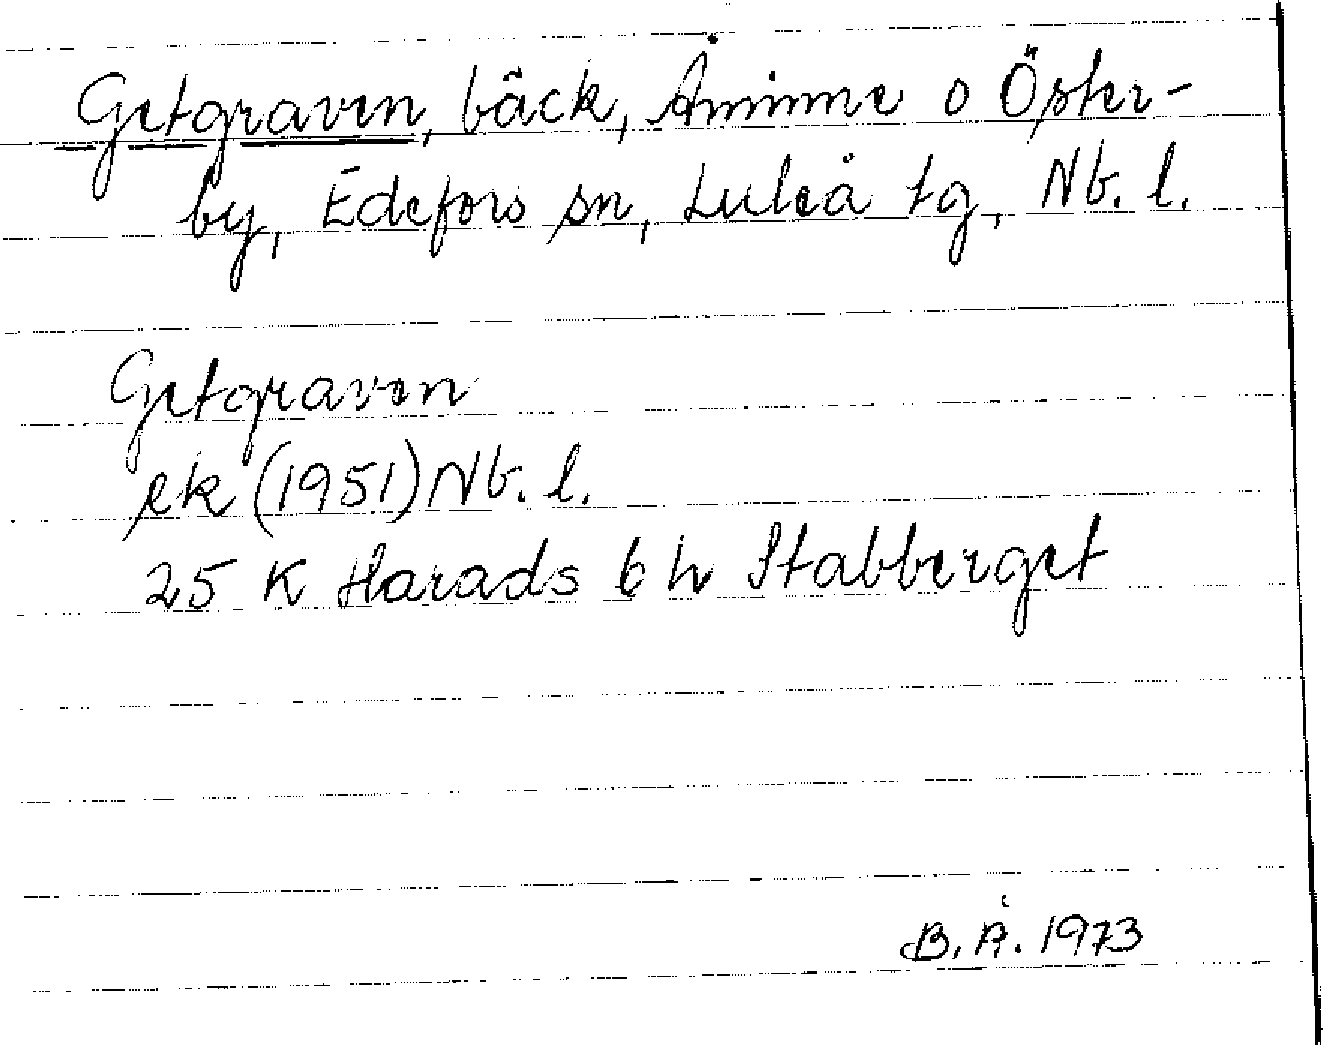 Getgraven, bäck, Åminne o Öster-
by, Edefors sn, Luleå tg, Nb. l.
Getgraven
ek (1951) Nb. l.
25 K Harads 6 h Stabberget
B. Å. 1973